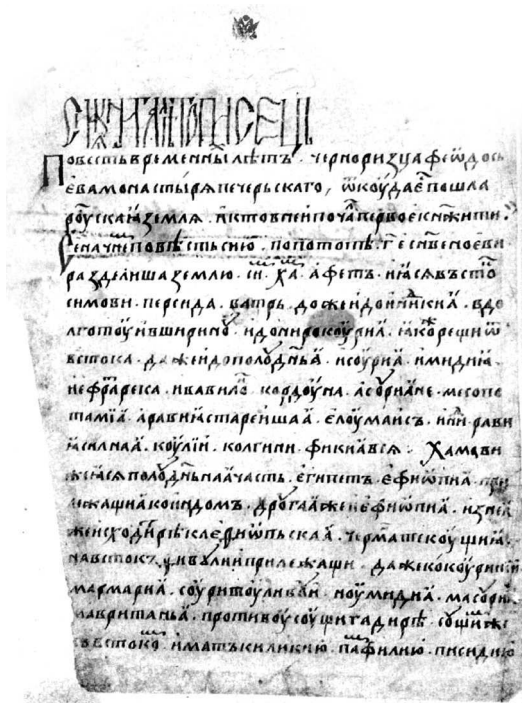 СИꙖ КНИГА ЛѢТОПИСЕЦЬ
Повесть временны лѣтъ · черноризца феѡдось
ева монастырѧ печерьскаго, ѿкоуда е пошла
роускаꙗ землѧ · и кто в неи поча первое кнѧжити ·
Се начне повѣсть сию · по потопѣ · г҃ е сн҃ве ноеви
разделиша землю · си · ха · афетъ · и ꙗсѧ въсто
симови · персида · ватрь · доже и до иникиа · в до
лготоу и в ширину · и до нирокоуриа · ꙗкоже рещи ѿ
встока · даже и до полоуднꙗ · и соуриа · и мидиꙗ ·
и ефрарека · и вавило · кордоуна · асориане · месопо
тамиа · аравиꙗ стареишаа · елоумаисъ · инди · рави
ꙗ силнаа · коулии · колгини · фикиа всѧ · Хамови
же ꙗсѧ полоуднꙗа часть · египетъ · ефиѡпиа · при
лежащиа ко индомъ · дроугаа же ефиѡпиа · из неꙗ
же исходи рѣка ефиѡпьскаа · чермна текоущиꙗ ·
на встокъ · ливуи прилежащи · даже и до коуринии
мармариа · соурите · ливуи · ноумидиа · масориꙗ
мавританьа · противоу соущи гадирѣ · сущиже
въстоко · имать киликию · пафилию · писидию